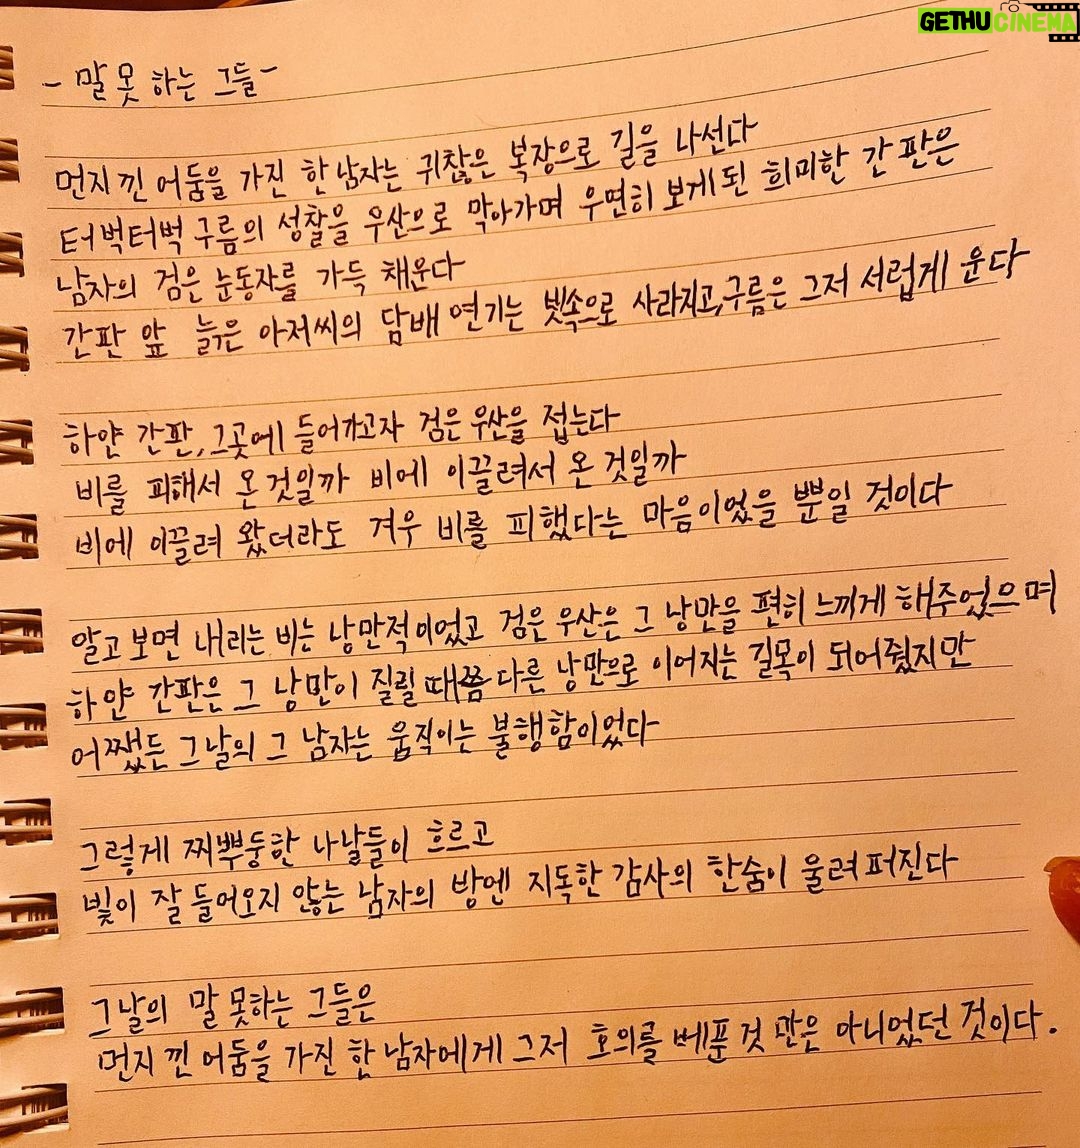 GETHUCINEMA
- 말 못 하는 그들 -
먼지 낀 어둠을 가진 한 남자는 귀찮은 복장으로 길을 나선다
터벅터벅 구름의 성찰을 우산으로 막아가며 우연히 보게된 희미한 간판은
남자의 검은 눈동자를 가득 채운다
간판 앞 늙은 아저씨의 담배 연기는 빗속으로 사라지고,구름은 그저 서럽게 운다
하얀 간판,그곳에 들어가고자 검은 우산을 접는다
비를 피해서 온 것일까 비에 이끌려서 온 것일까
비에 이끌려 왔더라도 겨우 비를 피했다는 마음이었을 뿐일 것이다
알고 보면 내리는 비는 낭만적이었고 검은 우산은 그 낭만을 편히 느끼게 해주었으며
하얀 간판은 그 낭만이 질릴 때쯤 다른 낭만으로 이어지는 길목이 되어줬지만
어쨌든 그날의 그 남자는 움직이는 불행함이었다
그렇게 찌뿌둥한 나날들이 흐르고
빛이 잘 들어오지 않는 남자의 방엔 지독한 감사의 한숨이 울려 퍼진다
그날의 말 못하는 그들은
먼지 낀 어둠을 가진 한 남자에게 그저 호의를 베푼 것 만은 아니었던 것이다.